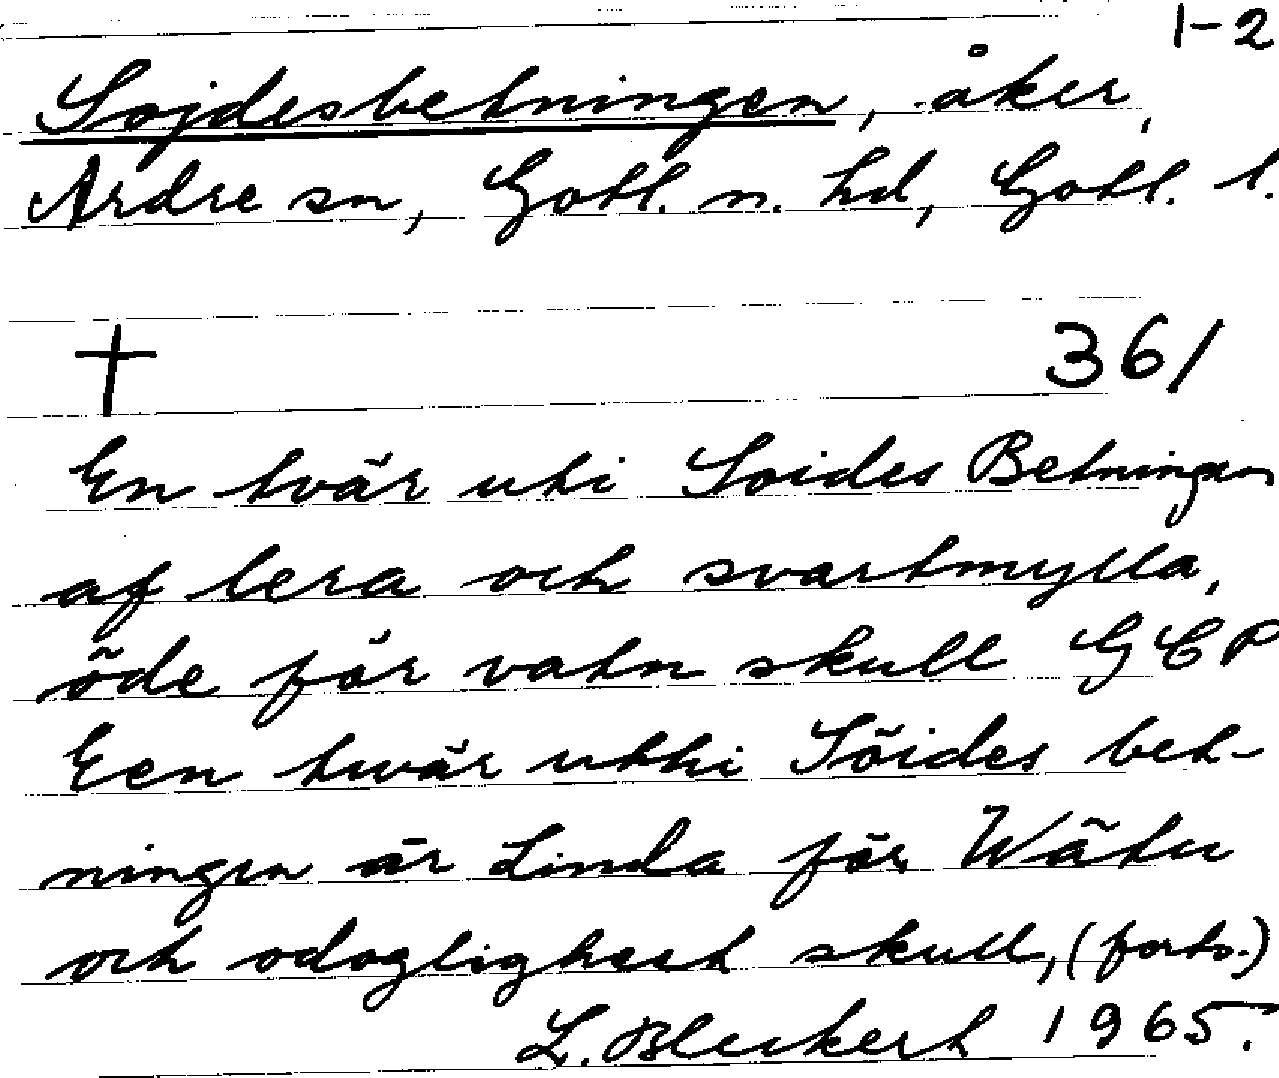 1-2
Sojdesbetningen, åker,
Ardre sn, Gotl. n. hd, Gotl. l.
† 361
En tvär uti Soides Betningen
af lera och svartmylla,
öde för vatn skull GCP
Een twär utti Söides bet-
ningen är Linda för Wätu
och odogligheet skull, (forts.)
L. Bleckert 1965.